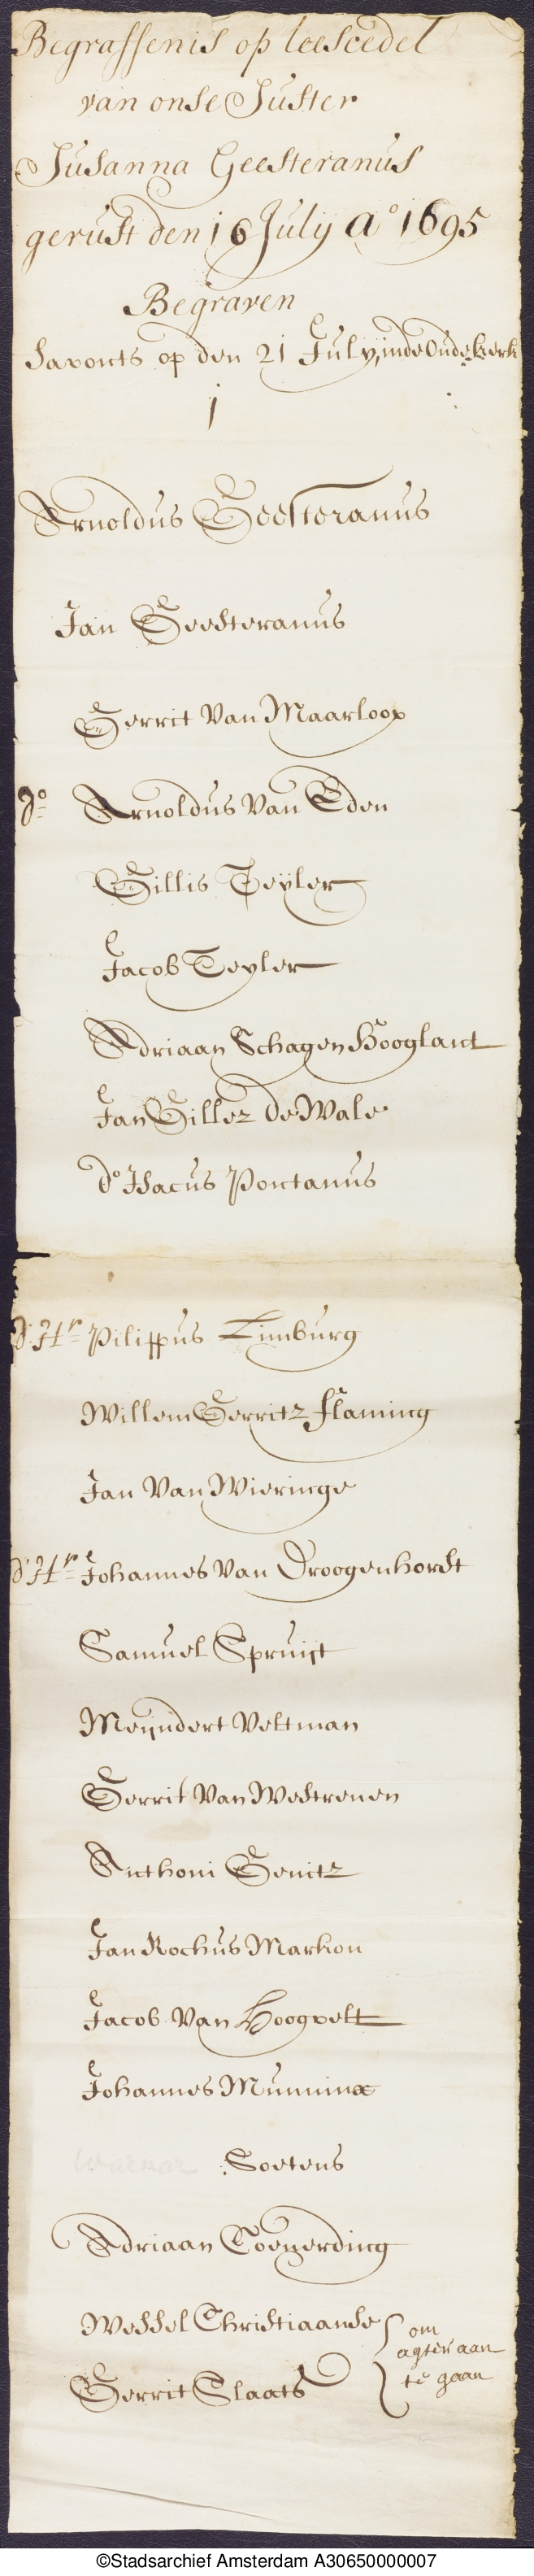 Begraffenis op leescedel
van onse Suster
Susanna Geesteranus
gerust den 16 July Aº 1695
Begraven
Savonts op den 21 July, inde Oude kerk
1
Arnoldus Geesteranus
Jan Geesteranus
Gerrit Van Maarloop
dº Arnoldus Van Eden
Gillis Teyler
Jacob Teyler
Adriaan Schagen Hooglant
Jan Gillez de Wale
dº Isacus Pontanus
d'Hr Pilippus Limburg
Willem Gerritz flaming
Jan Van Wieringe
d'Hr Johannes Van Droogenhorst
Samuel Spruijt
Meyndert Veltman
Gerrit Van Westrenen
Anthoni Gentz
Jan Rochus Markon
Jacob Van Hoogvelt
Johannes Munninx
Warnar Soetens
Adriaan Coeyerding
Wessel Christiaanse
om
agter aan
te gaan
Gerrit Slaats
©Stadsarchief Amsterdam A30650000007